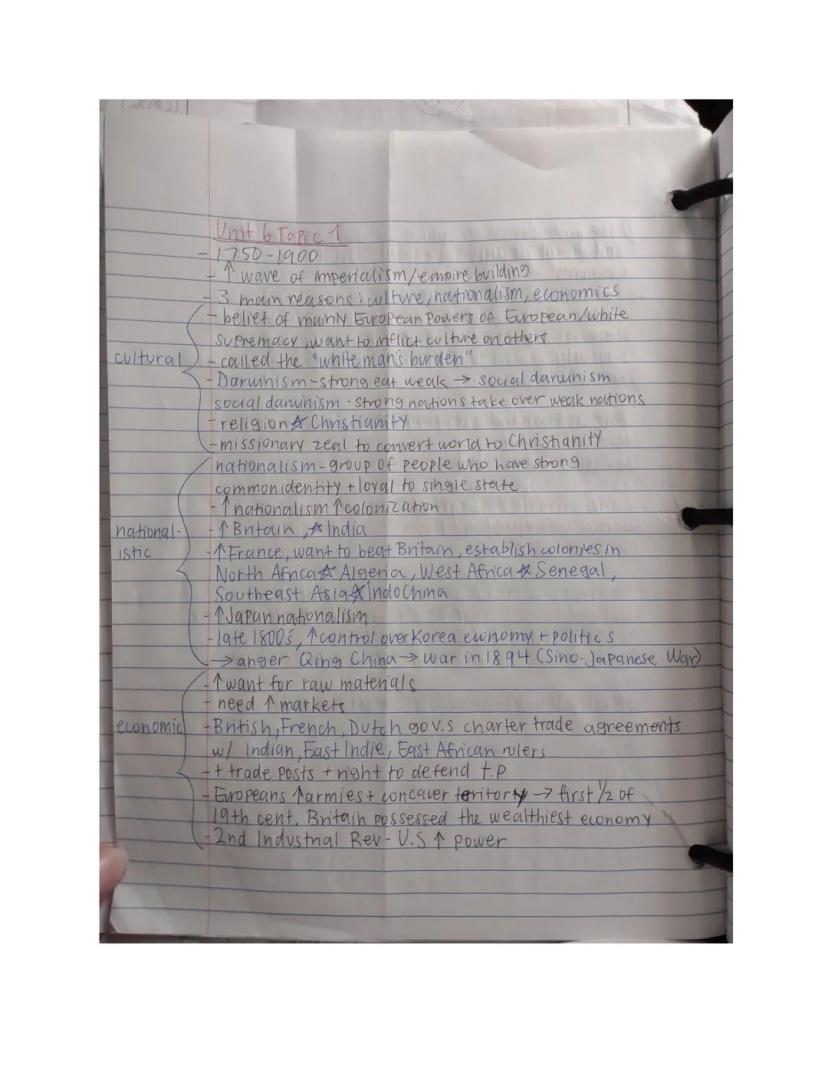 Unit 6 Topic 1
- 1750-1900
- ↑ wave of imperialism/empire building
- 3 main reasons: culture, nationalism, economics
- belief of many European Powers of European/white
supremacy, want to inflict culture on others
cultural - called the "white man's burden"
- Darwinism - strong eat weak → social darwinism
social darwinism - strong nations take over weak nations
- religion ☆ Christianity
- missionary zeal to convert world to Christianity
nationalism - group of people who have strong
common identity + loyal to single state
- ↑ nationalism ↑ colonization
national- - ↑ Britain, ☆ India
istic - ↑ France, want to beat Britain, establish colonies in
North Africa ☆ Algeria, West Africa ☆ Senegal,
Southeast Asia ☆ IndoChina
- ↑ Japan nationalism
- late 1800s, ↑ control over Korea economy + politics
→ anger Qing China → war in 1894 (Sino-Japanese War)
- ↑ want for raw materials
- need ↑ markets
economic - British, French, Dutch gov.s charter trade agreements
w/ Indian, East Indie, East African rulers
- + trade posts + right to defend t.p
- Europeans ↑ armies + concquer teritory → first 1/2 of
19th cent. Britain possessed the wealthiest economy
- 2nd Industrial Rev - U.S ↑ power